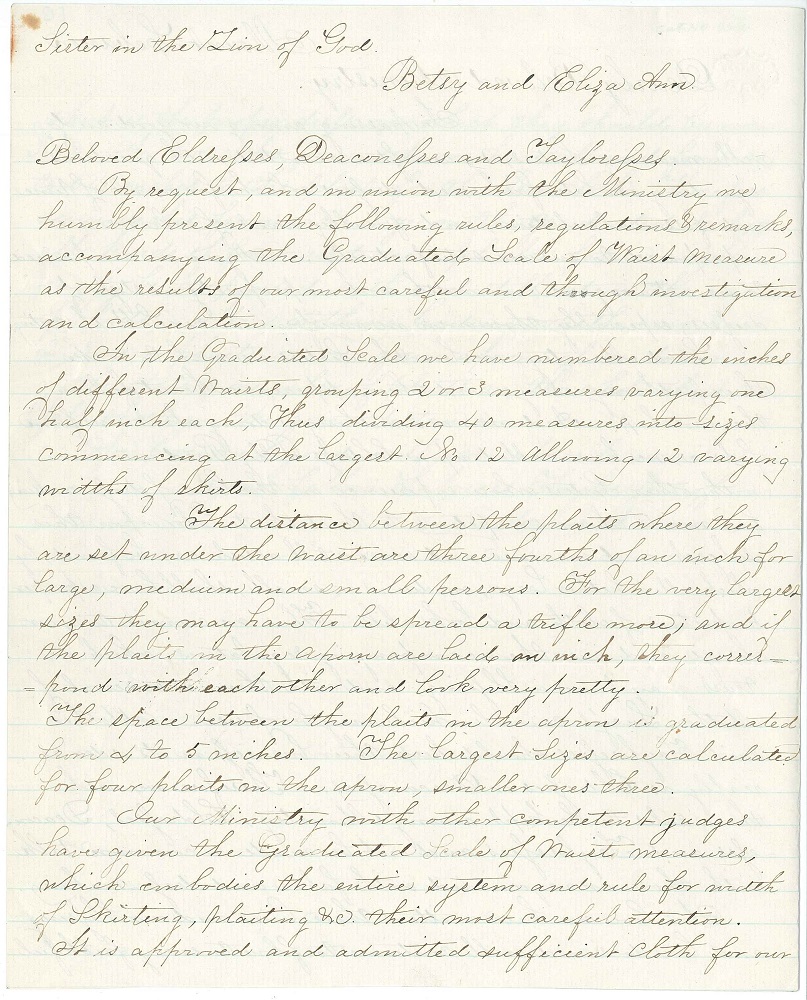 Sister in the Zion of God.
Betsy and Eliza Ann.
Beloved Eldresses, Deaconesses and Tayloresses.
By request, and in union with the Ministry we
humbly present the following rules, regulations & remarks,
accompanying the Graduated Scale of Waist Measure
as the results of our most careful and through investigation
and calculation.
In the Graduated Scale we have numbered the inches
of different Waists, grouping 2 or 3 measures varying one
half inch each, Thus dividing 40 measures into sizes
commencing at the largest. No 12 Allowing 12 varying
widths of skirts.
The distance between the plaits where they
are set under the waist are three fourths of an inch for
large, medium and small persons. For the very largest
sizes they may have to be spread a trifle more; and if
the plaits in the aporn are laid an inch, they corres=
=pond with each other and look very pretty.
The space between the plaits in the apron is graduated
from 4 to 5 inches. The largest sizes are calculated
for four plaits in the apron, smaller ones three.
Our Ministry with other competent judges
have given the Graduated Scale of Waist measures,
which embodies the entire system and rule for width
of Skirting, plaiting &c. their most careful attention.
It is approved and admitted sufficient cloth for our